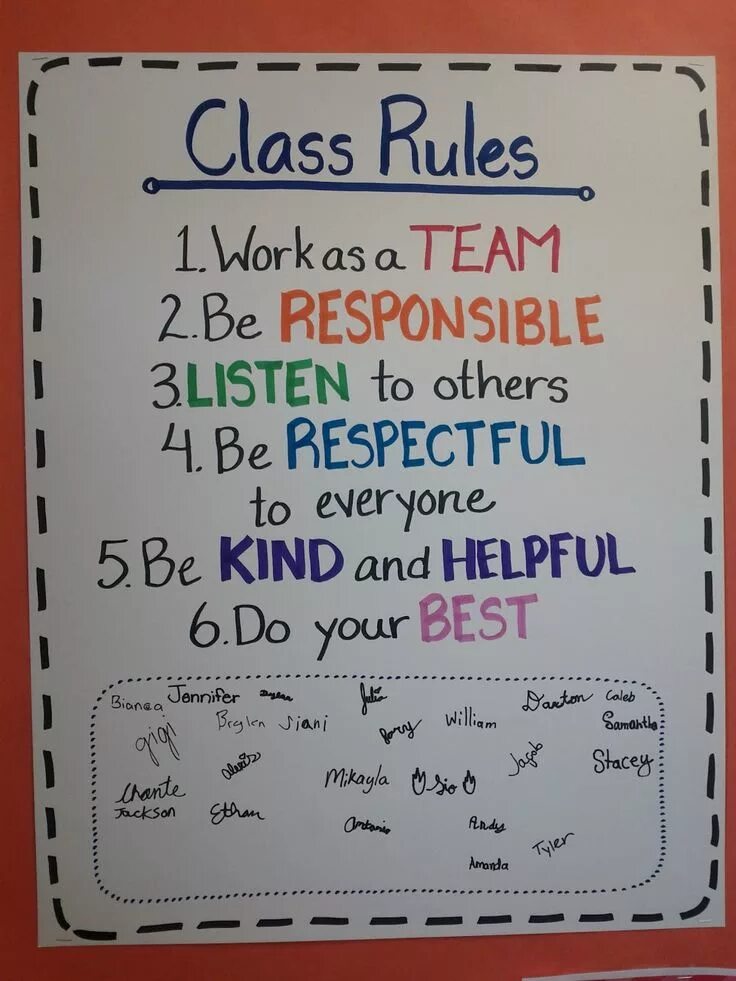 Class Rules
1. Work as a TEAM
2. Be RESPONSIBLE
3. LISTEN to others
4. Be RESPECTFUL
to everyone
5. Be KIND and HELPFUL
6. Do your BEST
Bianca Jennifer Julia Daxton Caleb
gigi Braylen Siani William Samantha
Mikayla Sio Jacob Stacey
Chante
Jackson Ethan Antonio Andy
Amanda Tyler